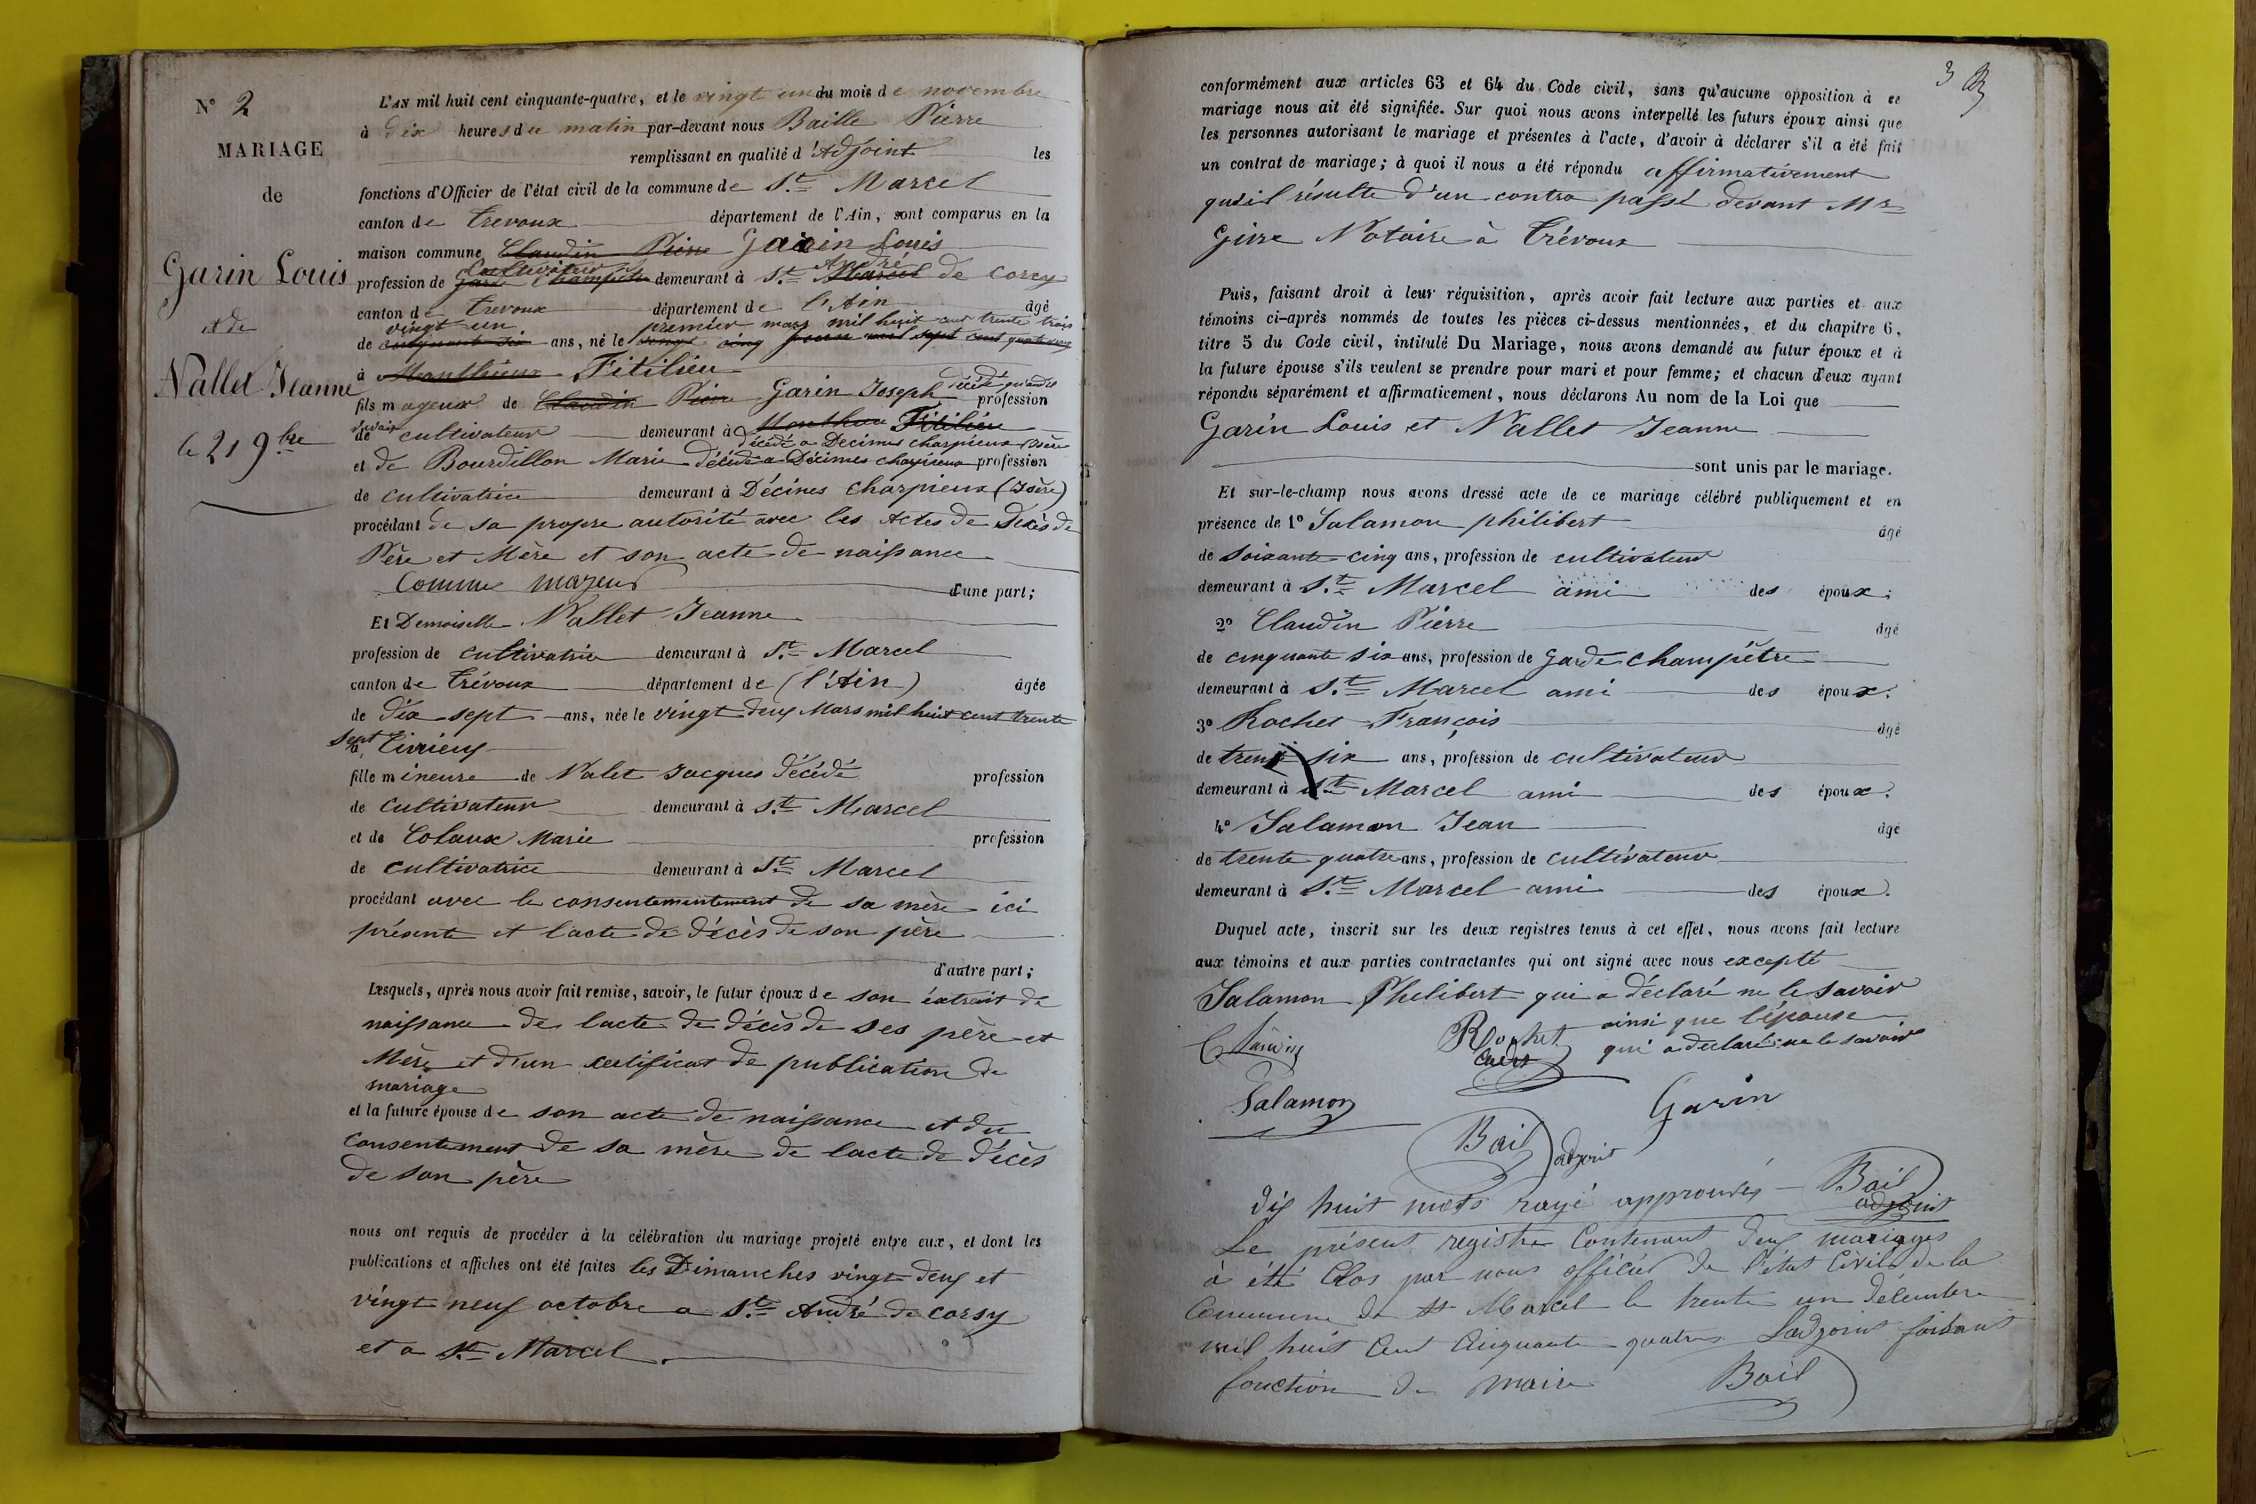 N° 2
MARIAGE
de
Garin Louis
et de
Nallet Jeanne
le 21 9bre
L'AN mil huit cent cinquante-quatre, et le vingt un du mois de novembre
à dix heures du matin par-devant nous Baille Pierre
remplissant en qualité d'Adjoint les
fonctions d'Officier de l'état civil de la commune de St Marcel
canton de Trevoux département de l'Ain, sont comparus en la
maison commune Claudin Pierre Garin Louis
profession de garde champêtre cultivateur demeurant à St Marcel André de corcy
canton de Trevoux département de l'Ain âgé
vingt un premier mars mil huit cent trente trois
de cinquante six ans, né le vingt cinq mil sept cent quatre vingt
à Monthieux Fitilieu
fils mageur de Claudin Pierre Garin Joseph décédé profession
de cultivateur demeurant à Fitilieu
décédé a Decimes charpieux Isère
et de Bourdillon Marie décédé a Décimes charpieux profession
de cultivatrice demeurant à Décines charpieux (Isère)
procédant de sa propre autorité avec les Actes de Décès de
Père et Mère et son acte de naissance
Comme majeur d'une part;
Et Demoiselle Nallet Jeanne
profession de cultivatrice demeurant à St Marcel
canton de Trévoux département de (l'Ain) âgée
de dix sept ans, née le vingt deux Mars mil huit cent trente
sept à Civrieux
fille mineure de Nalet Jacques décédé profession
de cultivateur demeurant à St Marcel
et de Colaux Marie profession
de cultivatrice demeurant à St Marcel
procédant avec le consentementement de sa mère ici
présente et lacte de décès de son père
d'autre part;
Lesquels, après nous avoir fait remise, savoir, le futur époux de son extrait de
naissance de lacte de décès de ses père et
Mère et d'un certificat de publication de
mariage
et la future épouse de son acte de naissance et du
consentement de sa mère de lacte de décès
de son père
nous ont requis de procéder à la célébration du mariage projeté entre eux, et dont les
publications et affiches ont été faites les Dimanches vingt deux et
vingt neuf octobre a St André de corsy
et a St Marcel.
3
conformément aux articles 63 et 64 du Code civil, sans qu'aucune opposition à ce
mariage nous ait été signifiée. Sur quoi nous avons interpellé les futurs époux ainsi que
les personnes autorisant le mariage et présentes à l'acte, d'avoir à déclarer s'il a été fait
un contrat de mariage; à quoi il nous a été répondu affirmativement
qu'il résulte d'un contra passé devant Mr
Givre Notaire à Trévoux
Puis, faisant droit à leur réquisition, après avoir fait lecture aux parties et aux
témoins ci-après nommés de toutes les pièces ci-dessus mentionnées, et du chapitre 6,
titre 5 du Code civil, intitulé Du Mariage, nous avons demandé au futur époux et à
la future épouse s'ils veulent se prendre pour mari et pour femme; et chacun d'eux ayant
répondu séparément et affirmativement, nous déclarons Au nom de la Loi que
Garin Louis et Nallet Jeanne
sont unis par le mariage.
Et sur-le-champ nous avons dressé acte de ce mariage célébré publiquement et en
présence de 1° Salamon philibert âgé
de soixante cinq ans, profession de cultivateur
demeurant à St Marcel ami des époux;
2° Claudin Pierre âgé
de cinquante six ans, profession de Garde champêtre
demeurant à St Marcel ami des époux.
3° Rochet François âgé
de trente six ans, profession de cultivateur
demeurant à St Marcel ami des époux.
4° Salamon Jean âgé
de trente quatre ans, profession de cultivateur
demeurant à St Marcel ami des époux.
Duquel acte, inscrit sur les deux registres tenus à cet effet, nous avons fait lecture
aux témoins et aux parties contractantes qui ont signé avec nous excepté
Salamon Phelibert qui a déclaré ne le savoir
ainsi que l'épouse
qui a declaré ne le savoir
Claudin
Rochet
Salamon
Garin
Bail adjoint
dix huit mots rayé approuvés Bail
adjoint
Le présent registre contenant deux mariages
à été Clos par nous officier de l'état Civil de la
Commune de St Marcel le trente un décembre
mil huit Cent Cinquante quatre Ladjoint faisant
fonction de maire Bail